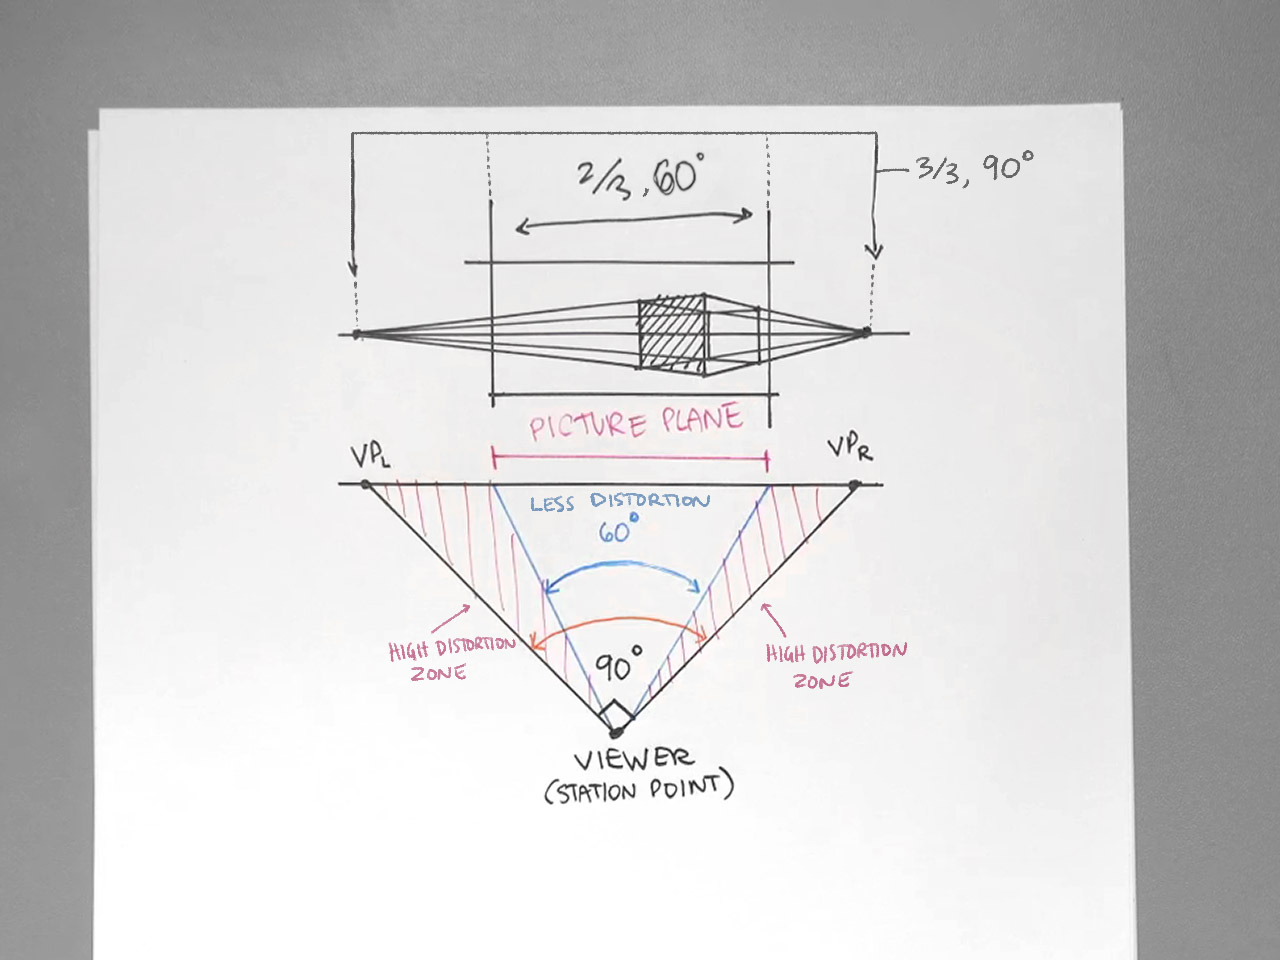 2/3, 60°
3/3, 90°
PICTURE PLANE
VPL
VPR
LESS DISTORTION
60°
HIGH DISTORTION
ZONE
90°
HIGH DISTORTION
ZONE
VIEWER
(STATION POINT)